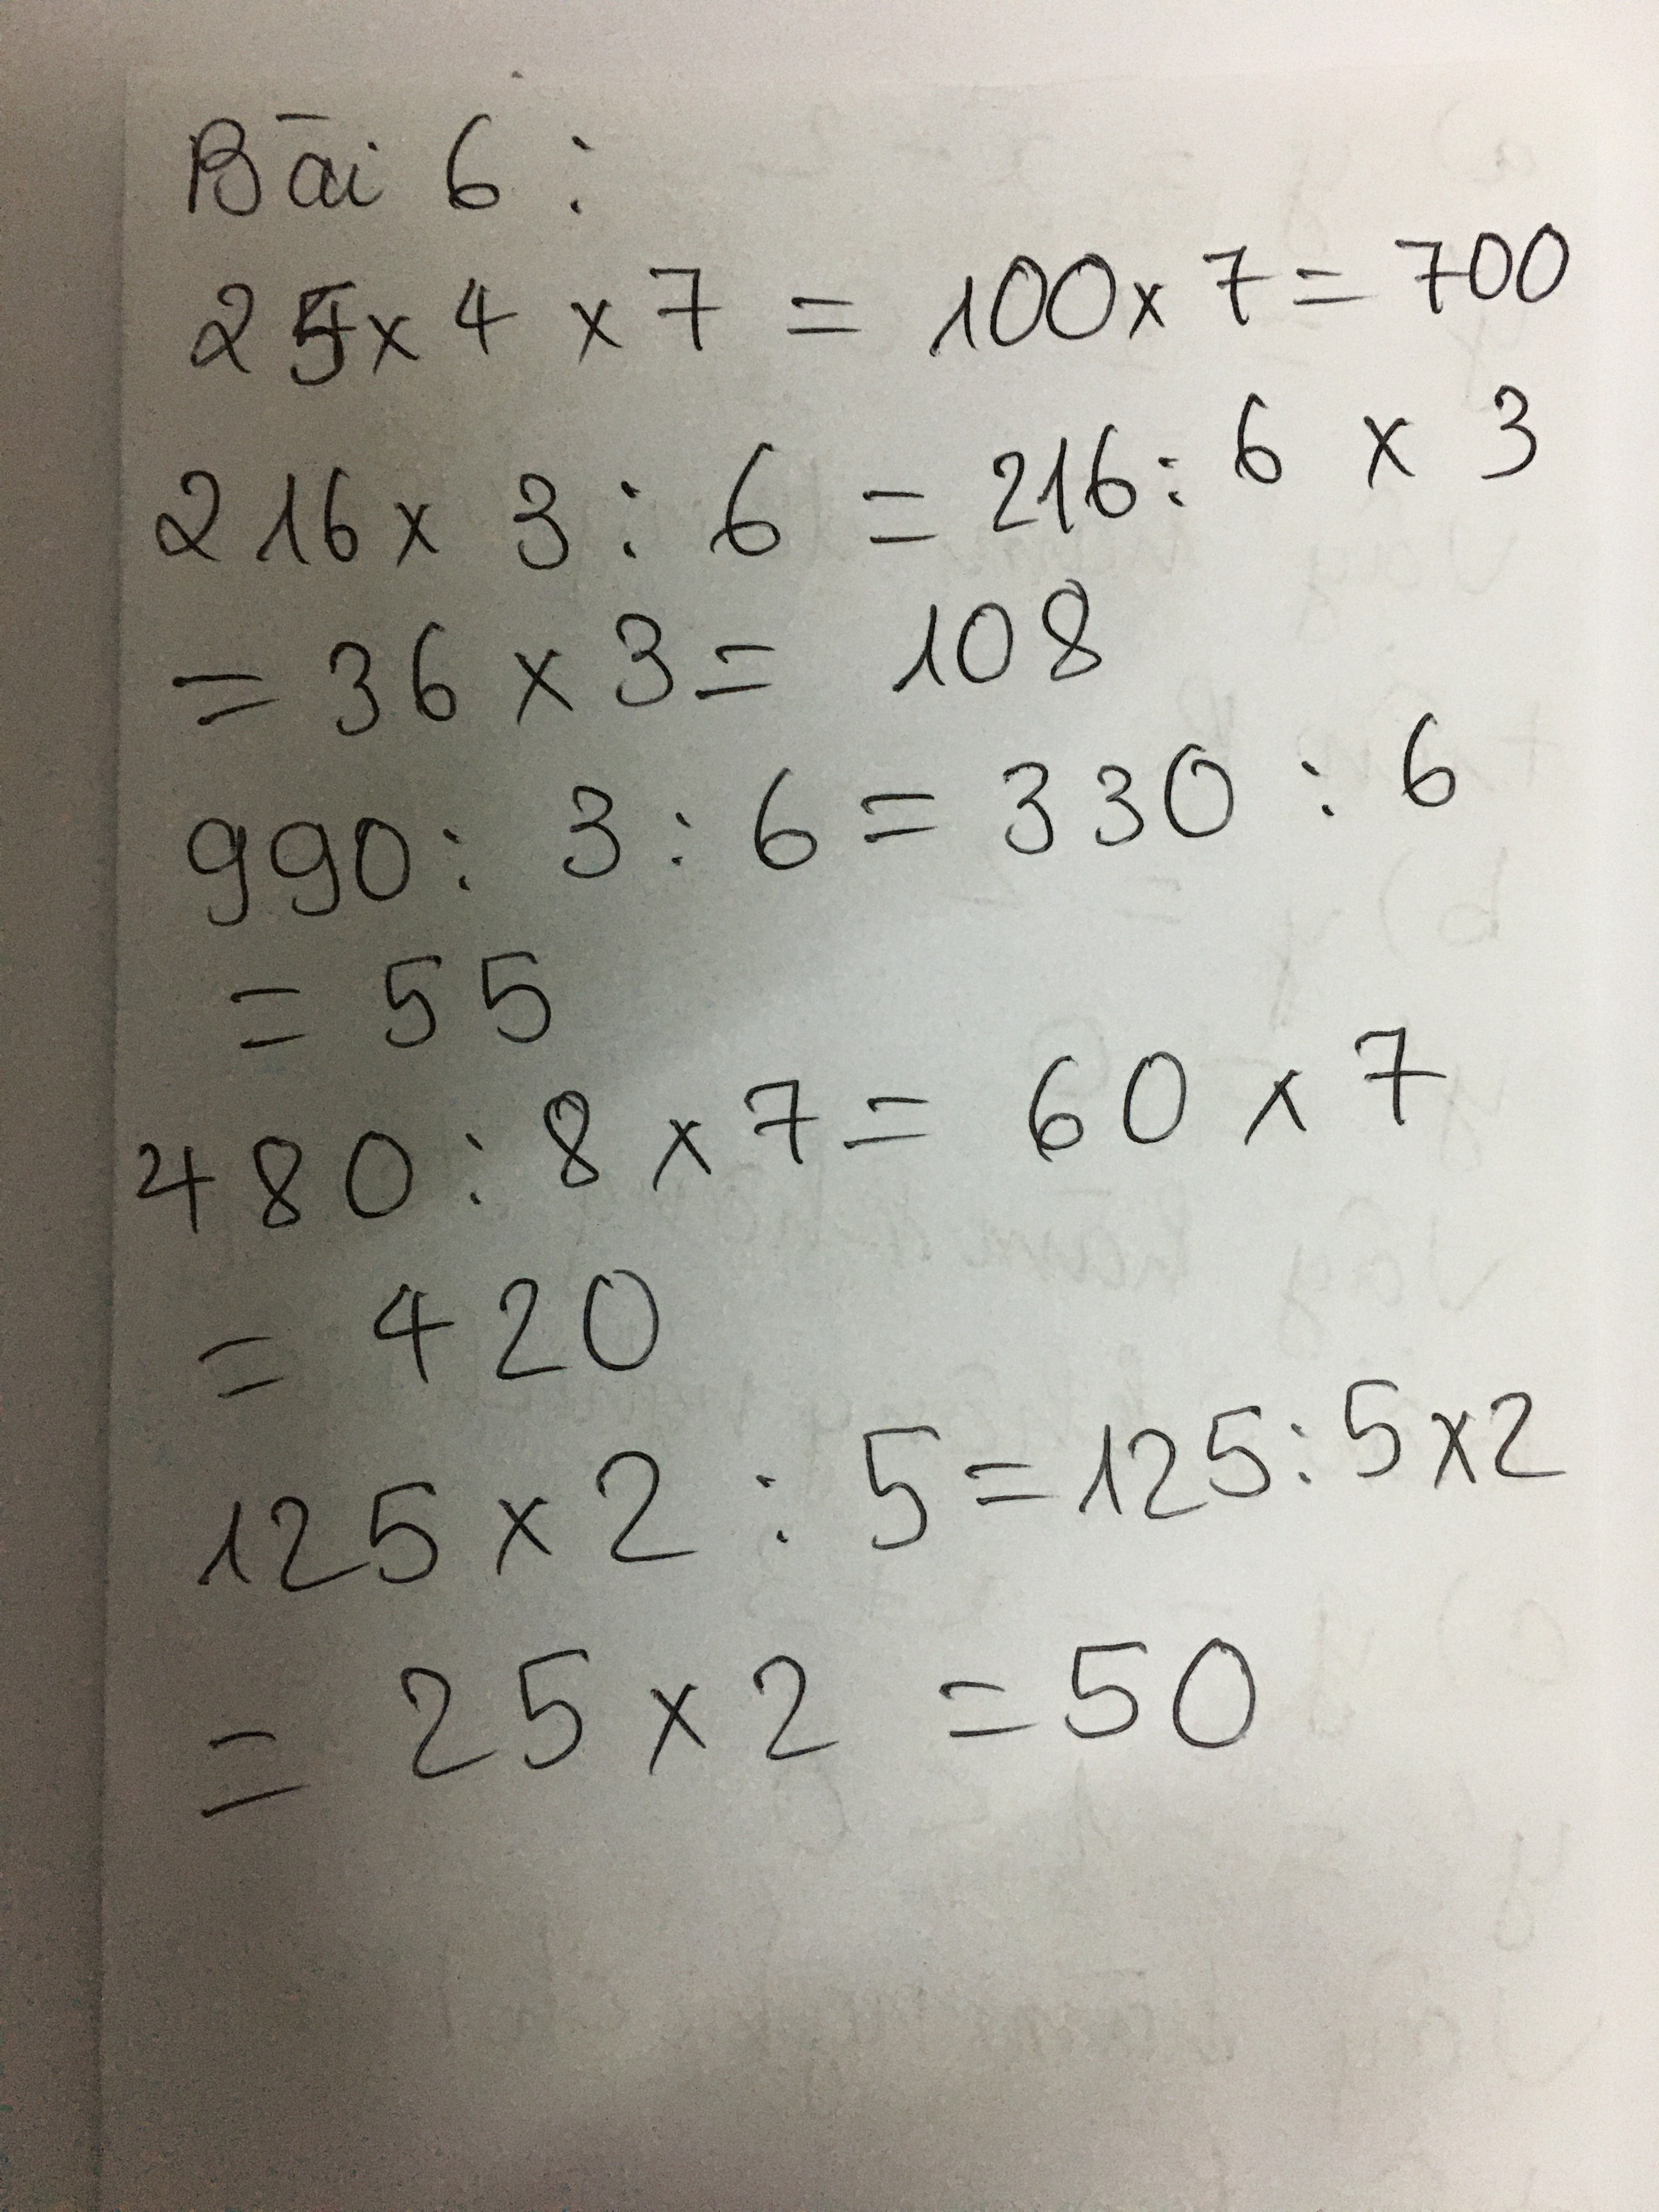 Bài 6 :
25 x 4 x 7 = 100 x 7 = 700
216 x 3 : 6 = 216 : 6 x 3
= 36 x 3 = 108
990 : 3 : 6 = 330 : 6
= 55
480 : 8 x 7 = 60 x 7
= 420
125 x 2 : 5 = 125 : 5 x 2
= 25 x 2 = 50